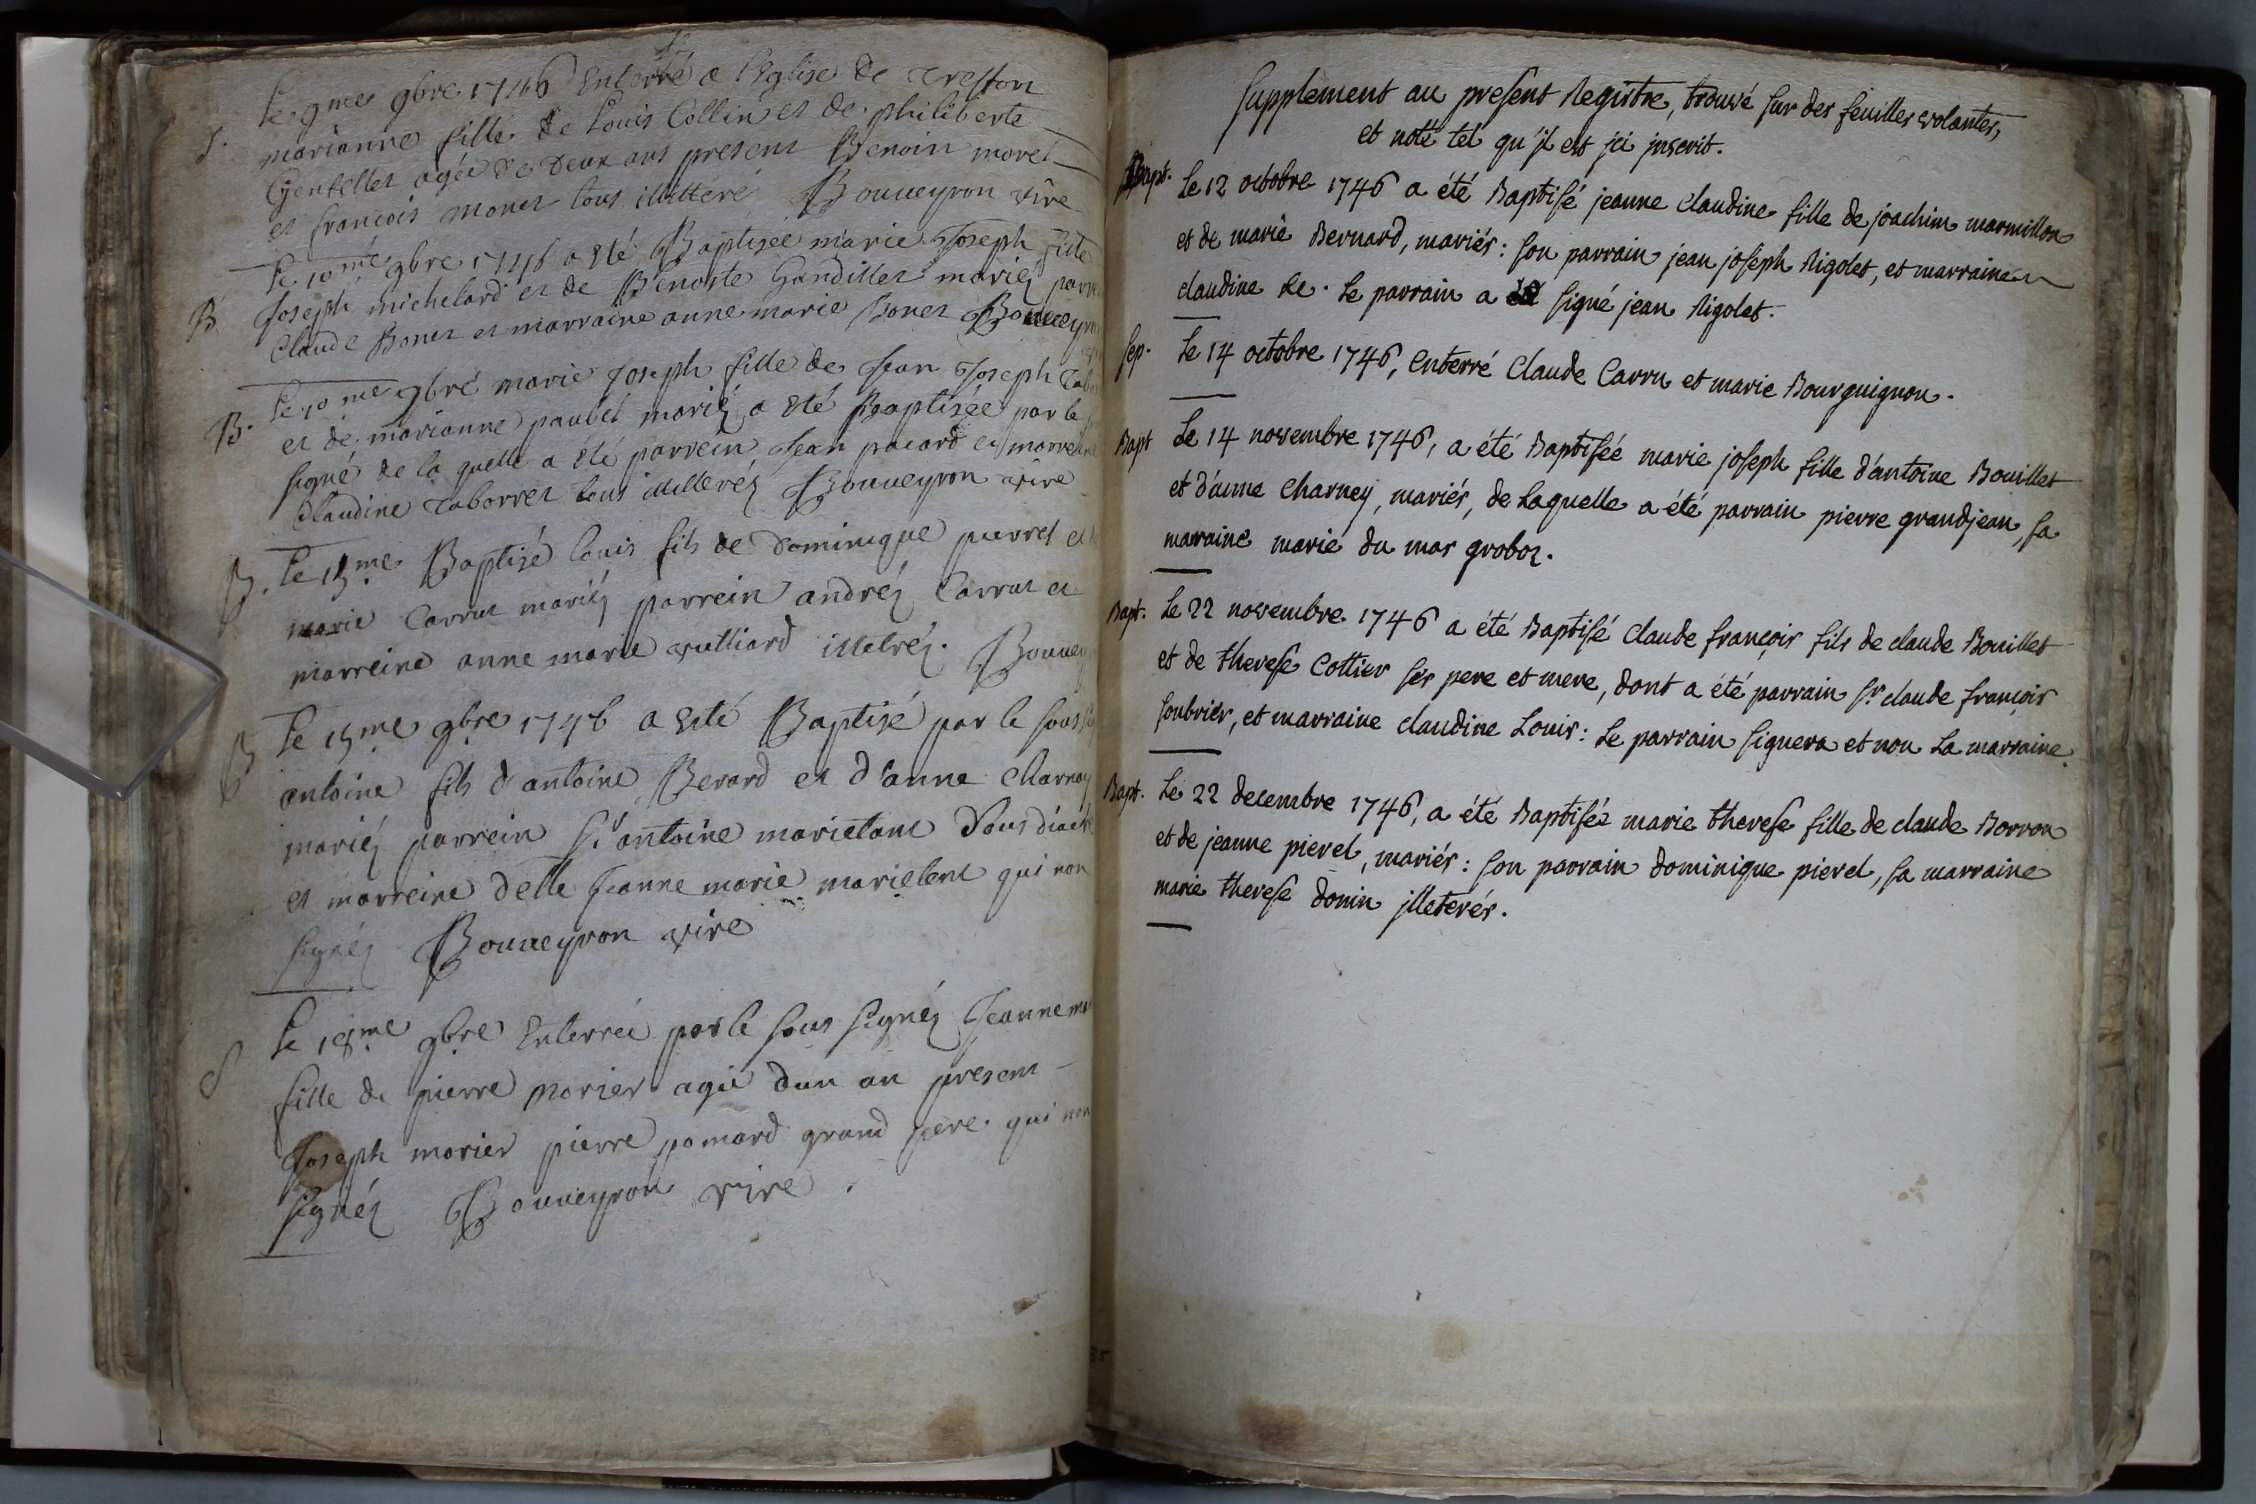 S.
Le 9me 9bre 1746 Enterré a l'Eglise de treffort
marianne fille de Louis Collin et de philiberte
Gentellet agée de deux ans present Benoin morel
et francois monet tous illitteré Bouveyron vire
B
Le 10me 9bre 1746 a Eté Baptisée marie Joseph fille
Joseph michelard et de Benoite Gandillet mariez
Claude Bonet et marraine anne marie Bonet
B.
Le 10me 9bre marie Joseph fille de Jean Joseph
et de marianne paubel mariez a Eté Baptisée par le
signé de la quelle a été parrein Jean pacard et
Claudine taborret tous illitteréz Bouveyron vire
B.
Le 15me Baptisé louis fils de Dominique pierrel et
marie Carrut mariéz parrein andréz Carrut et
marreine anne marie vulliard illetréz.
B
Le 15me 9bre 1746 a Eté Baptisé par le sous
antoine fils d'antoine Berard et d'anne Charnay
mariéz parrein Sr antoine marietant Sousdiacre
et marreine delle Jeanne marie marietent qui non
signéz Bouveyron vire
S
Le 18me 9bre Enterrée par le sous signéz Jeanne
fille de pierre morier agée dun an present
Joseph morier pierre pomard grand pere qui non
signéz Bouveyron vire.
Supplément au present Registre, trouvé sur des feuilles volantes,
et noté tel qu'jl est jci jnscrit.
Bapt. Le 12 octobre 1746 a été Baptisé jeanne claudine fille de joachim marmillon
et de marie Bernard, mariés: son parrain jean joseph Rigolet, et marraine
claudine Re. Le parrain a signé jean Rigolet.
Sep. Le 14 octobre 1746, Enterré Claude Carru et marie Bourguignon.
Bapt Le 14 novembre 1746, a été Baptisée marie joseph fille d'antoine Bouillet
et d'anne Charney, mariés, de Laquelle a été parrain pierre grandjean, sa
marraine marie du mas groboz.
Bapt. Le 22 novembre 1746 a été Baptisé Claude françois fils de claude Bouillet
et de therese Cottier ses pere et mere, dont a été parrain Sr. claude françois
soubrier, et marraine claudine Louis: Le parrain signera et non La marraine.
Bapt. Le 22 decembre 1746, a été Baptisée marie therese fille de claude Borron
et de jeanne pierel, mariés: son parrain dominique pierel, sa marraine
marie therese donin jlleterés.